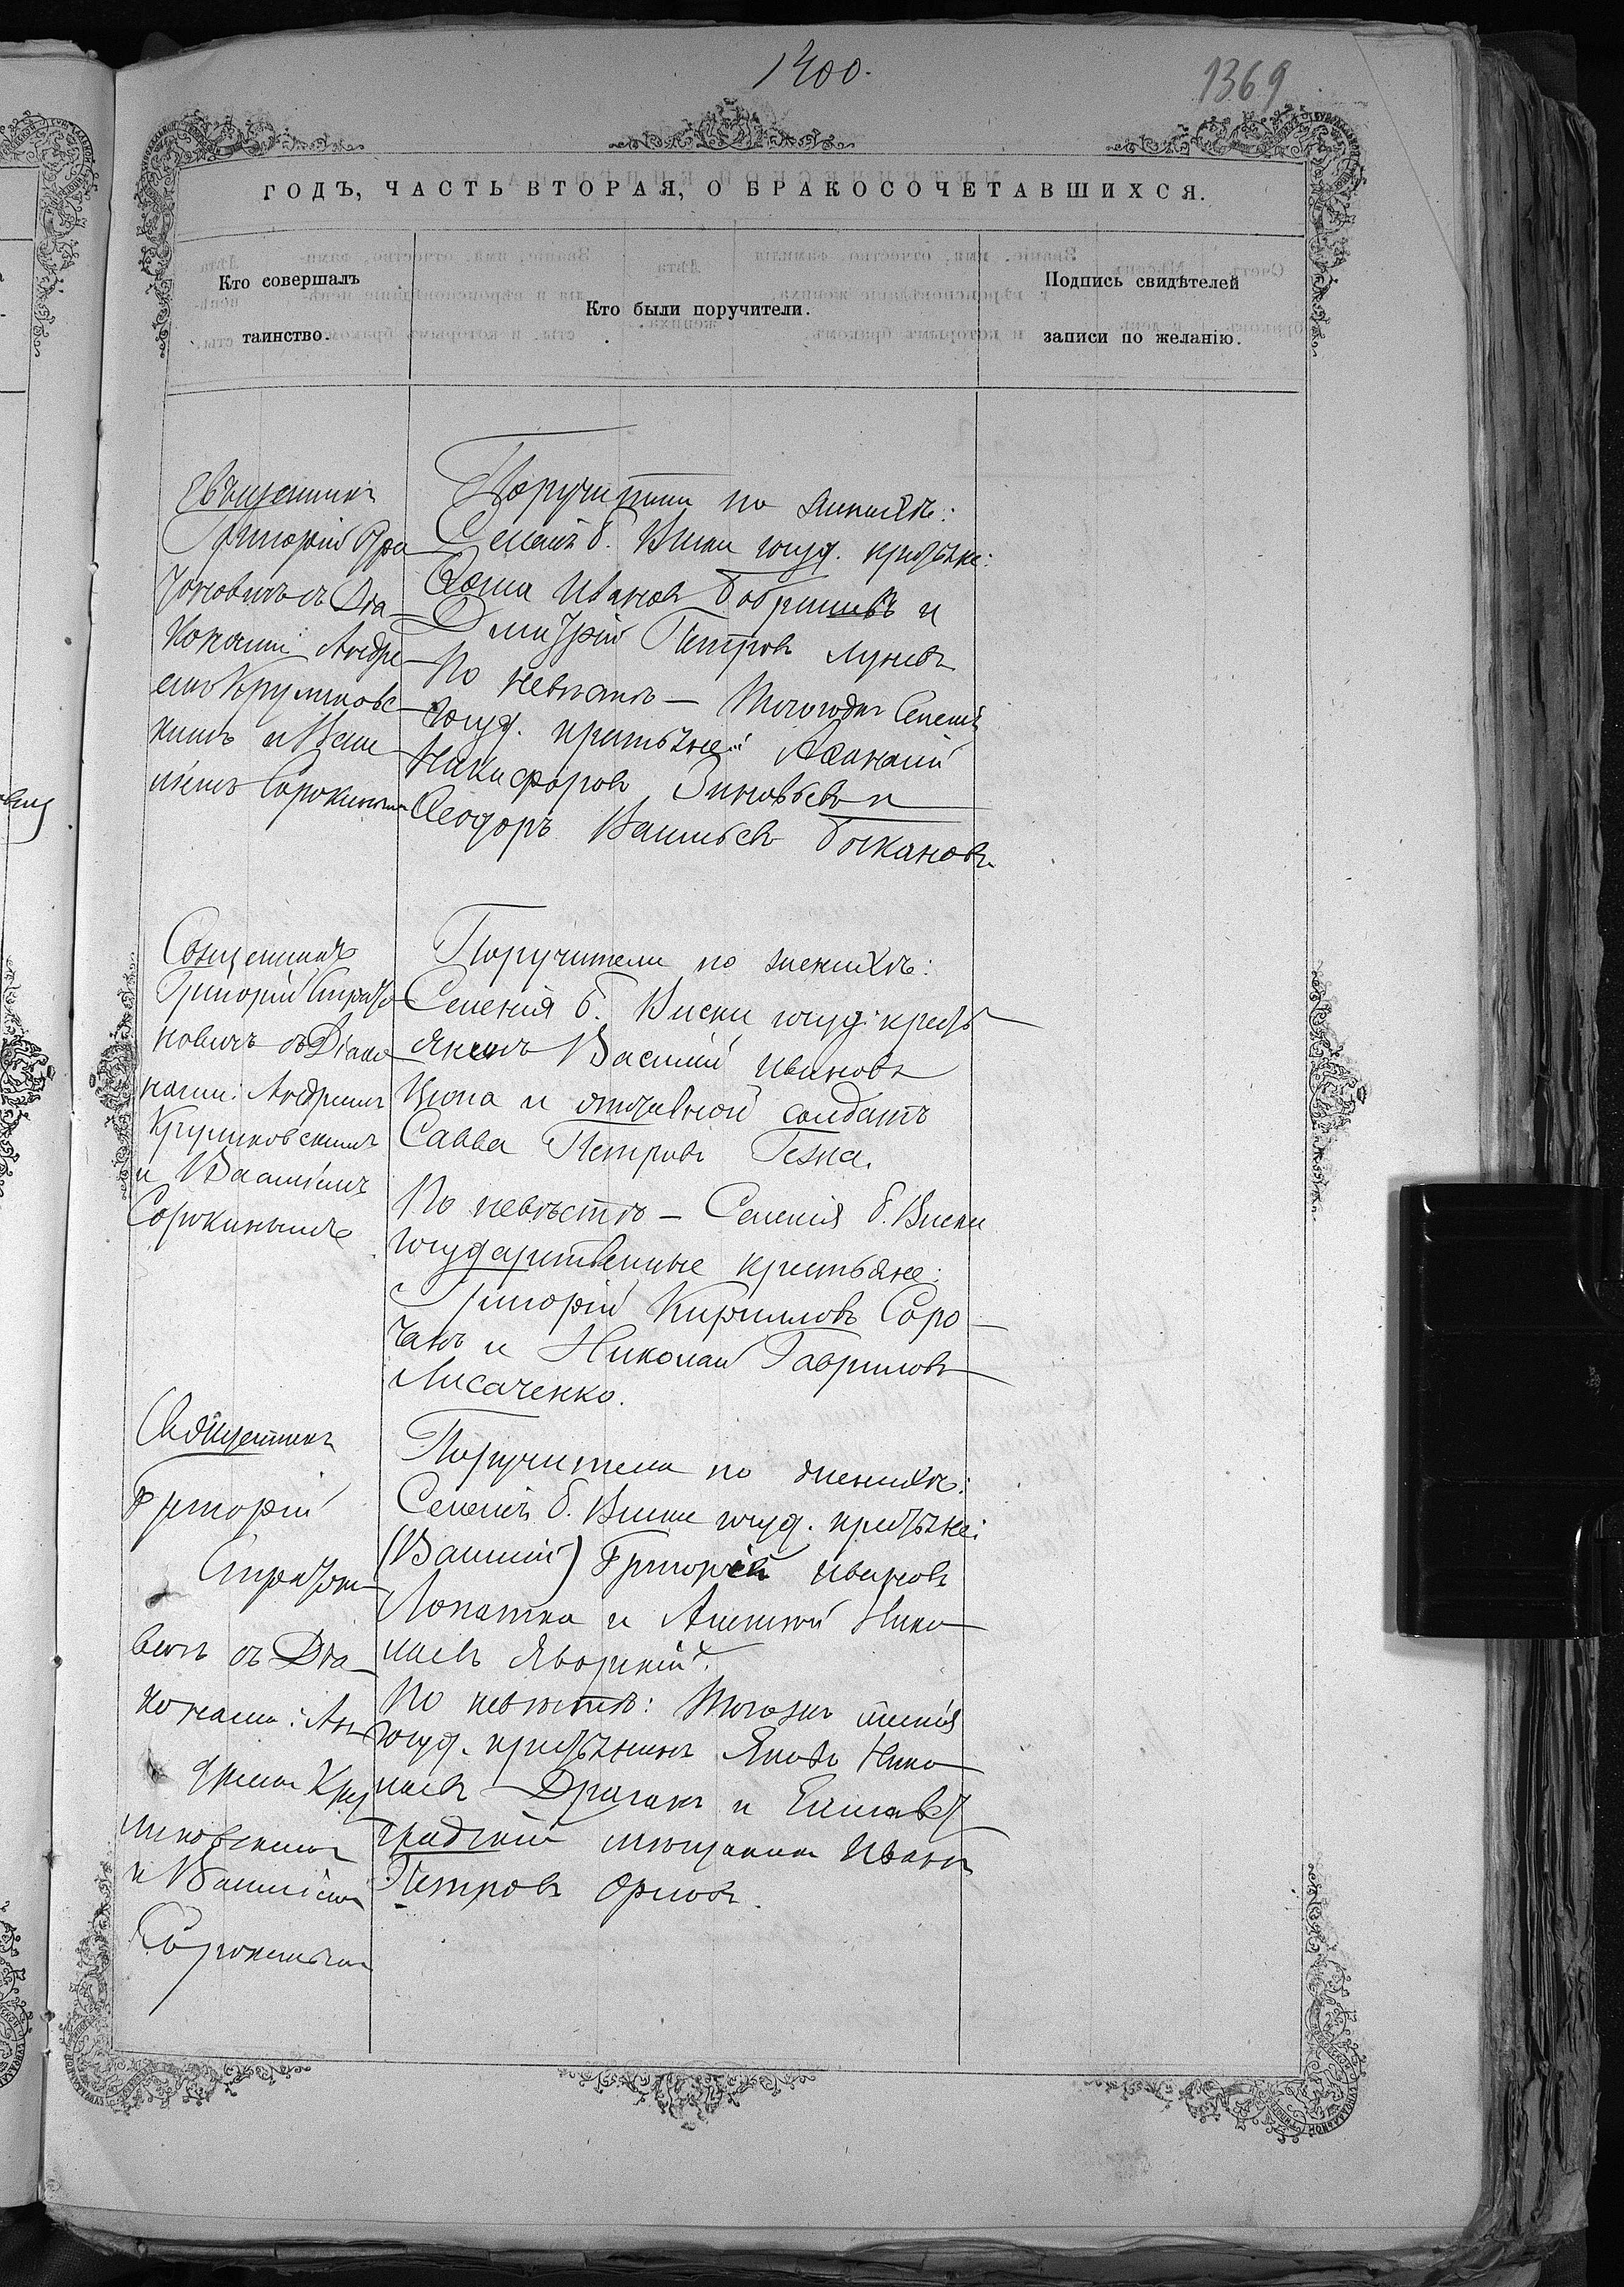 1400.
1369
ГОДЪ, ЧАСТЬ ВТОРАЯ, О БРАКОСОЧЕТАВШИХСЯ.
Кто совершалъ
таинство.
Кто были поручители.
Подпись свидѣтелей
записи по желанію.
Священникъ
Григорій
новичъ съ Діа
конами: Андре
емъ Круликовс
кимъ и Васи
ліемъ Сорокинымъ
Поручители по женихѣ:
Селенія б. Виски госуд. крестьяне:
Ѳома Ивановъ и
Дмитрій Петровъ Луневъ
По невѣстѣ — Того же Селенія
госуд. крестьяне: Аѳанасій
Никифоровъ Зиновьевъ и
Ѳеодоръ Васильевъ
Священникъ
Григорій Стратоновичъ
новичъ съ Діако
нами: Андреемъ
Круликовскимъ
и Василіемъ
Сорокинымъ
Поручители по женихѣ:
Селенія б. Виски госуд. кресть
янинъ Василій Ивановъ
Цюпа и отставной солдатъ
Савва Петровъ Гезпа.
По невѣстѣ — Селенія б. Виски
государственные крестьяне:
Григорій Кирилловъ Соро
чанъ и Николай Гавриловъ
Лисаченко.
Священникъ
Григорій
Стратоно
вичъ съ Діа
конами: Ан
дреемъ Кру
ликовскимъ
и Василіемъ
Сорокинымъ
Поручители по женихѣ:
Селенія б. Виски госуд. крестьяне:
(Василій) Григорій Ивановъ
Лопатка и Алексѣй Нико
лаевъ Яворскій.
По невѣстѣ: Того же селенія
госуд. крестьянинъ Яковъ Нико
лаевъ Драганъ и Елисавет
градскій мѣщанинъ Иванъ
Петровъ Орловъ.